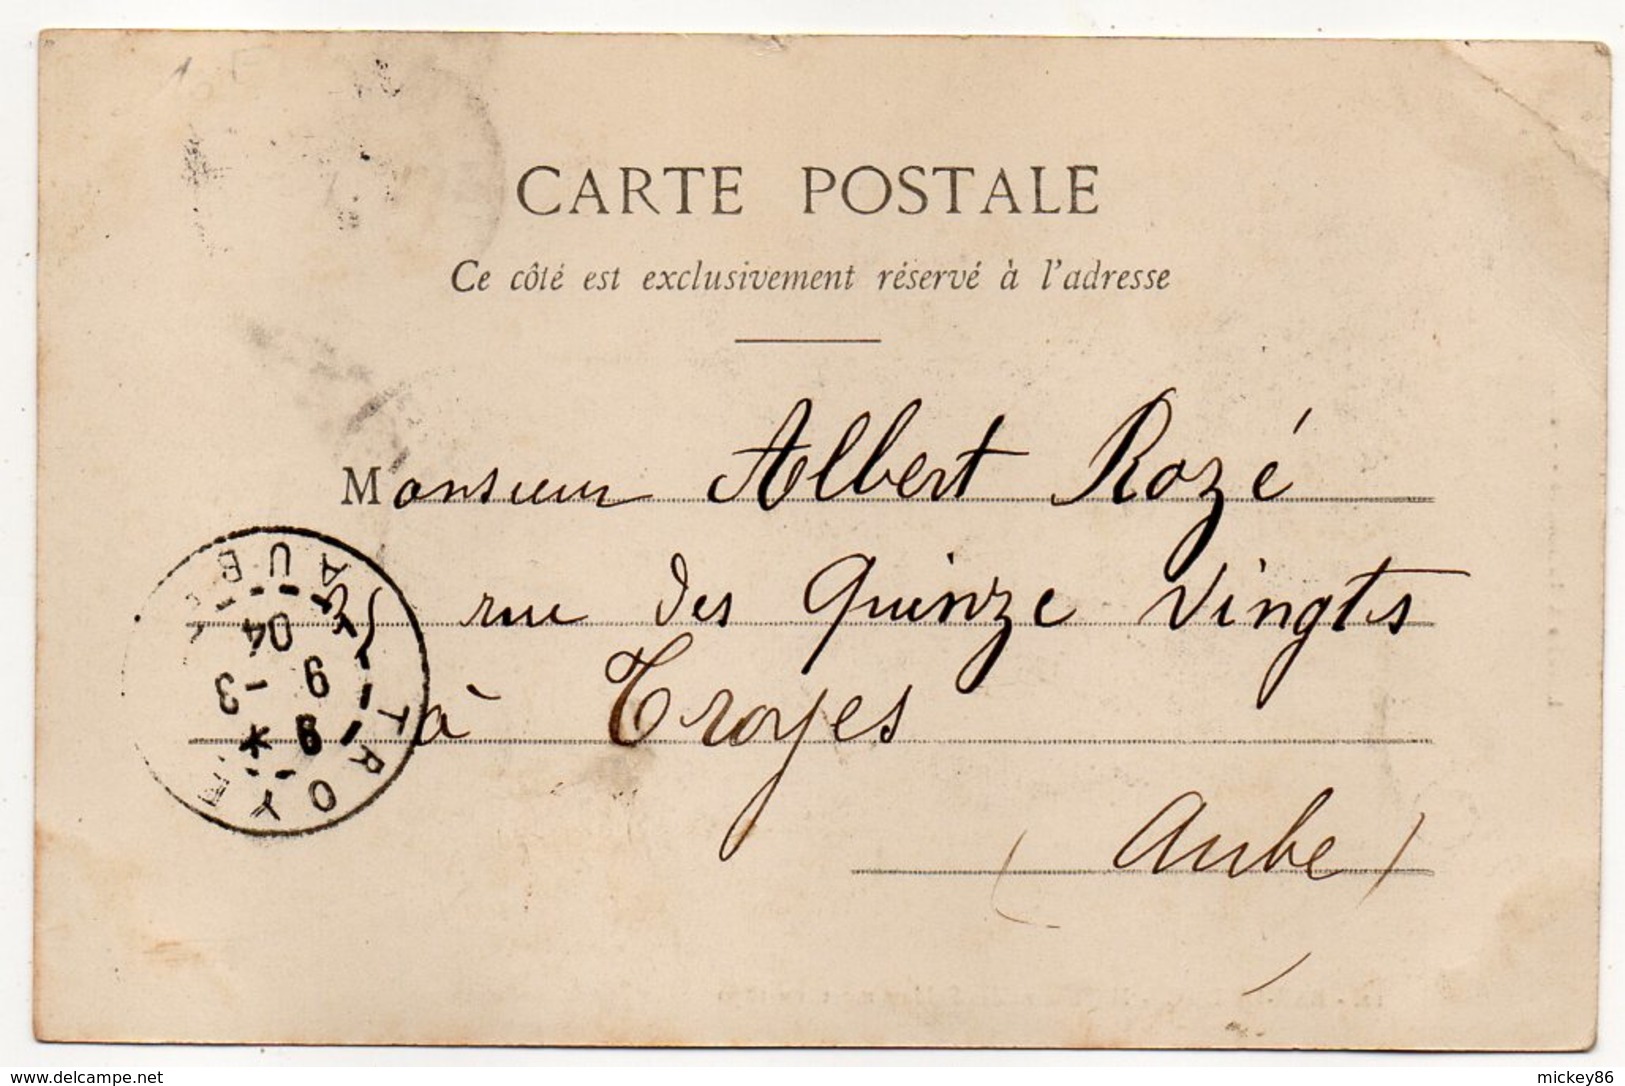 CARTE POSTALE
Ce côté est exclusivement réservé à l'adresse
Monsieur Albert Rozé
rue des Quinze Vingts
à Troyes
(Aube)
TROYES
AUBE
9 -3
04
www.delcampe.net
mickey86